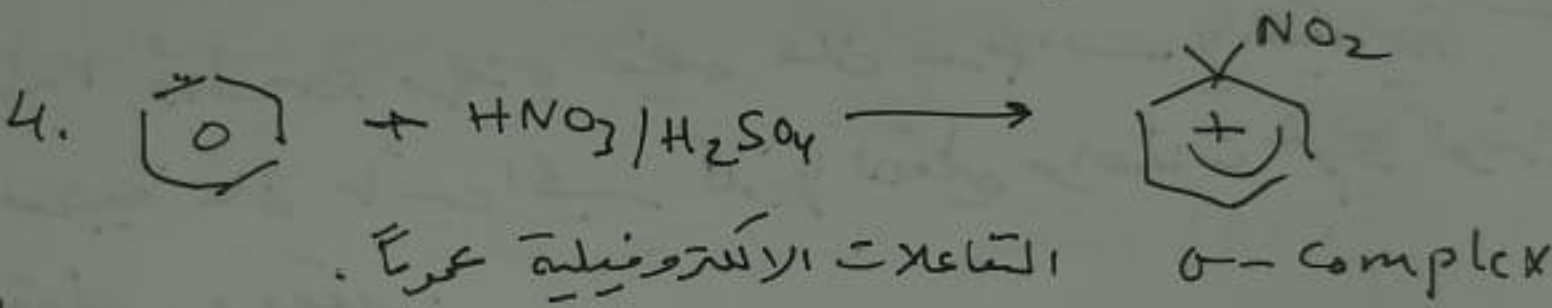 4. + HNO3/H2SO4 → NO2 +
التفاعلات الالكتروفيلية عموماً. σ-complex